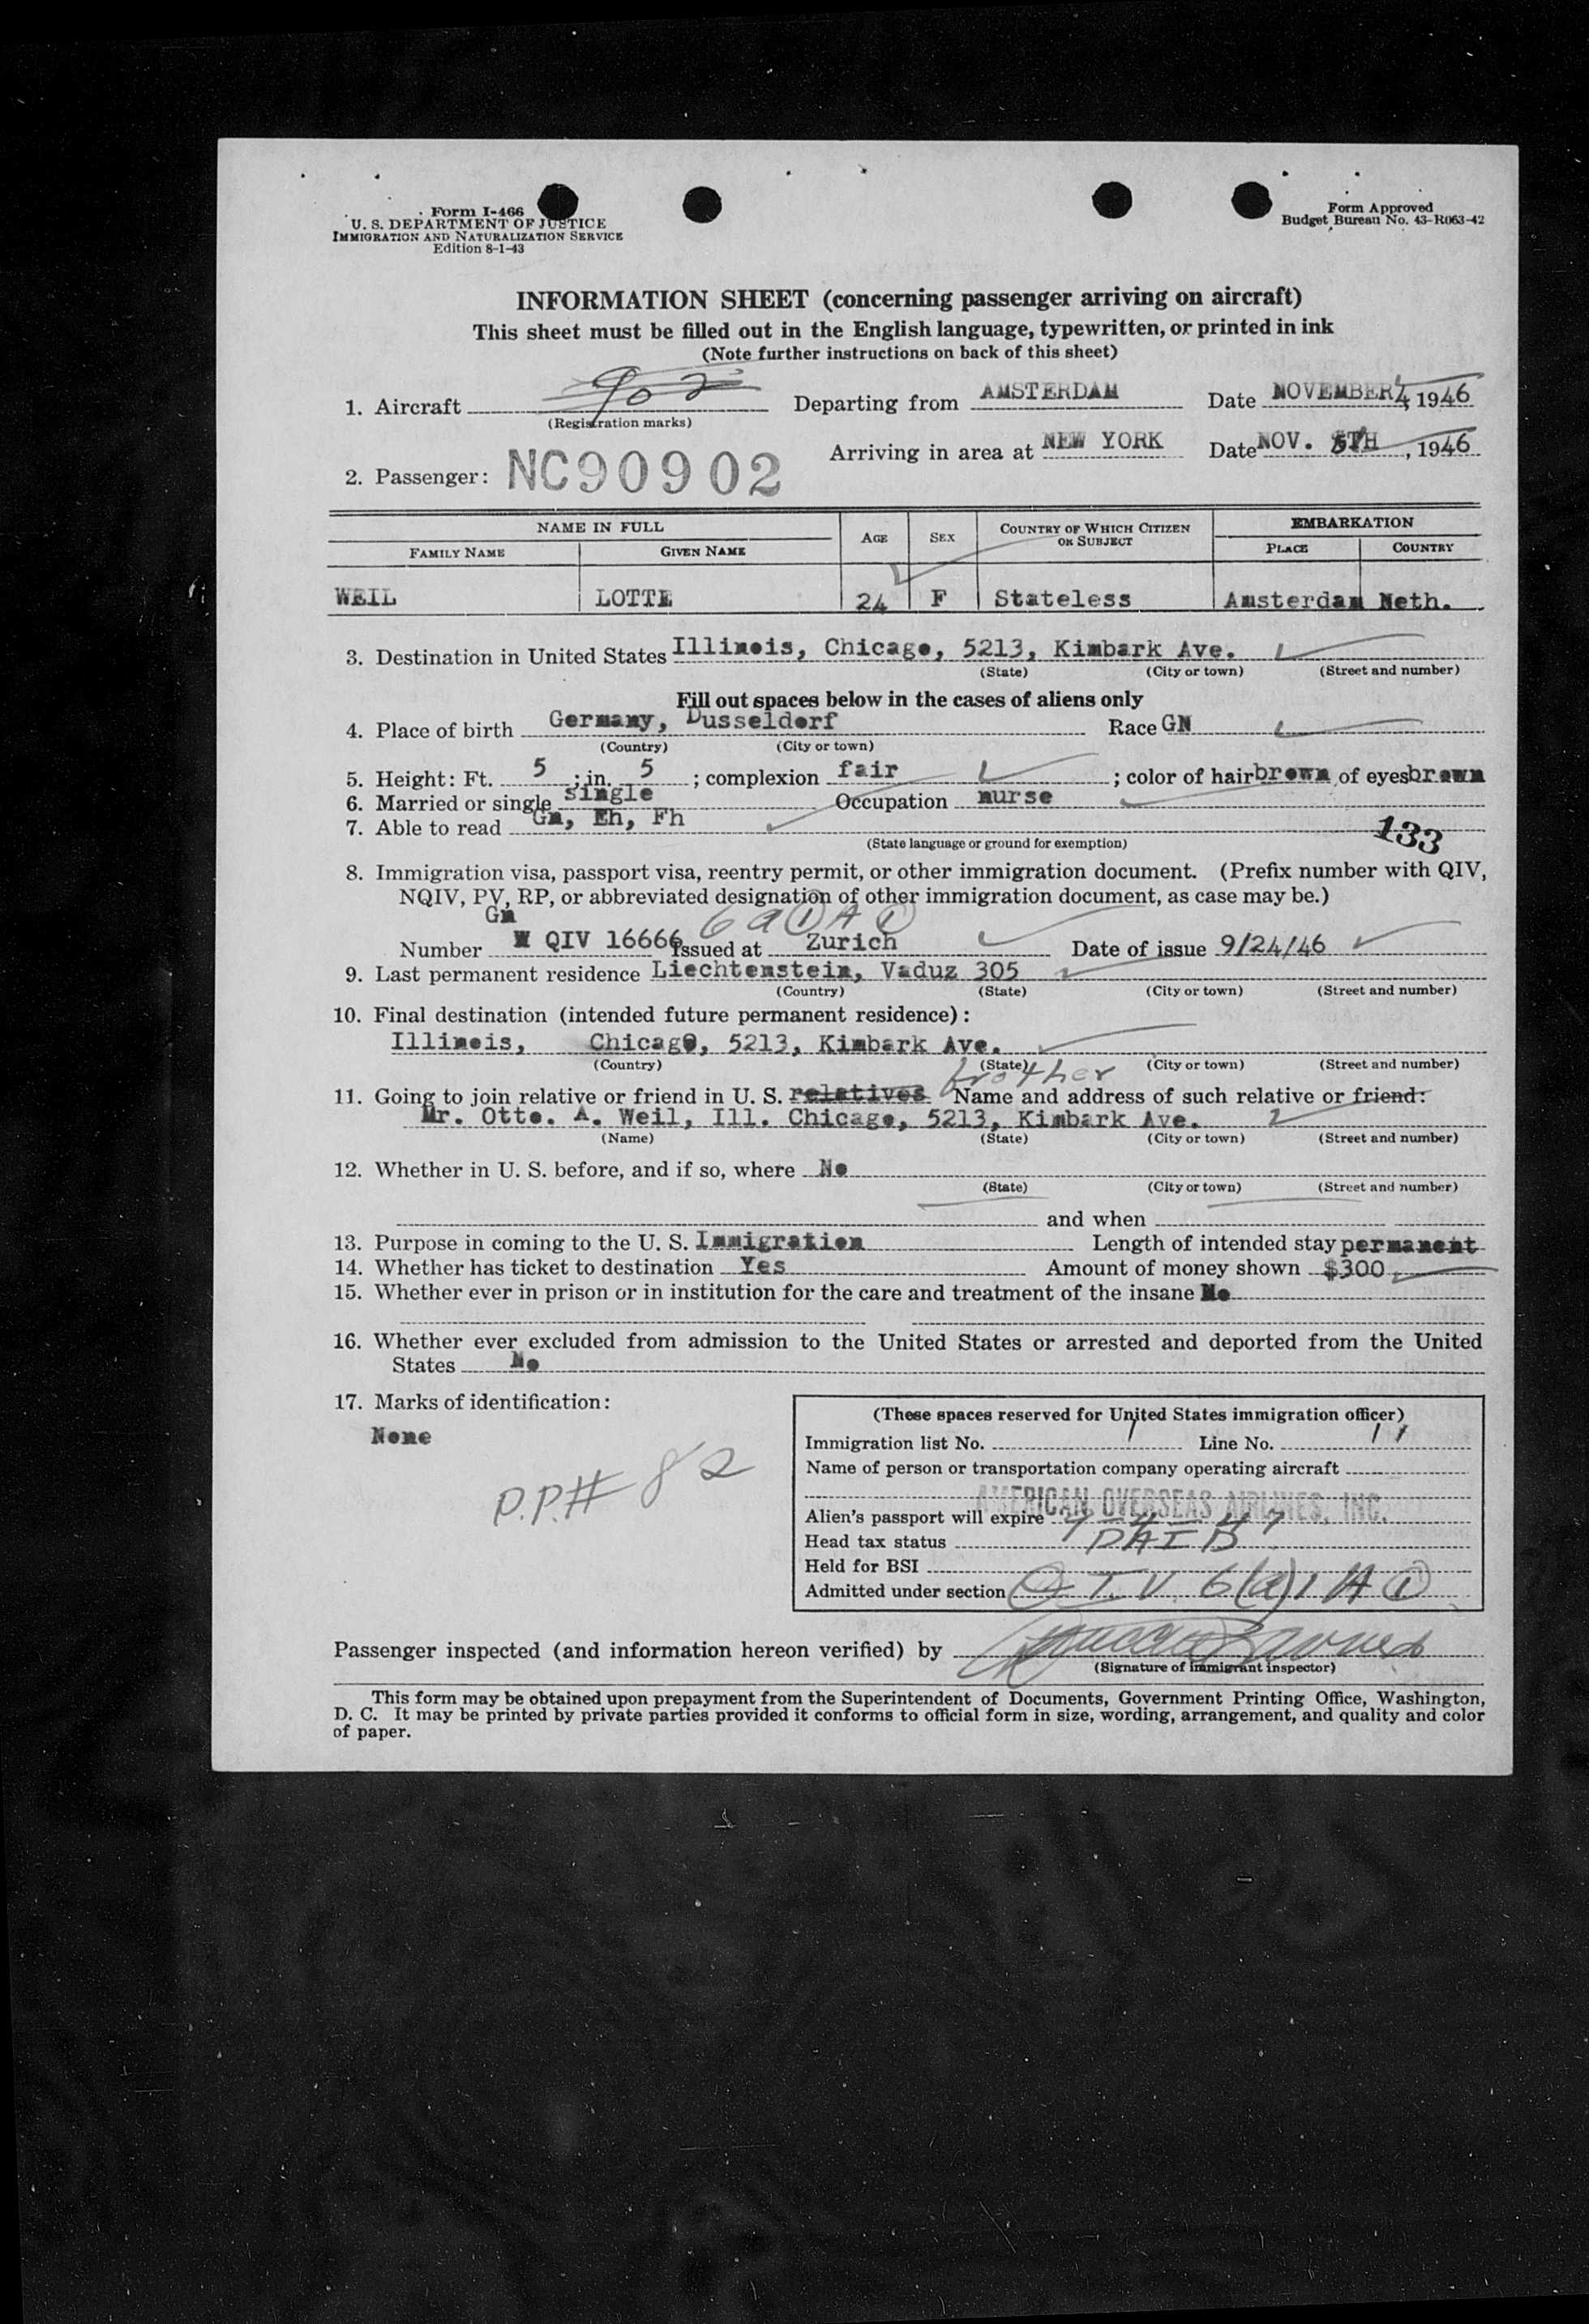 Form I-466
U. S. DEPARTMENT OF JUSTICE
IMMIGRATION AND NATURALIZATION SERVICE
Edition 8-1-43
Form Approved
Budget Bureau No. 43-R063-42
INFORMATION SHEET (concerning passenger arriving on aircraft)
This sheet must be filled out in the English language, typewritten, or printed in ink
(Note further instructions on back of this sheet)
1. Aircraft 902 Departing from AMSTERDAM Date NOVEMBER 4, 1946
(Registration marks)
Arriving in area at NEW YORK Date NOV. 5TH, 1946
2. Passenger: NC90902
NAME IN FULL AGE SEX COUNTRY OF WHICH CITIZEN OR SUBJECT EMBARKATION
FAMILY NAME GIVEN NAME PLACE COUNTRY
WEIL LOTTE 24 F Stateless Amsterdam Neth.
3. Destination in United States Illinois, Chicago, 5213, Kimbark Ave.
(State) (City or town) (Street and number)
Fill out spaces below in the cases of aliens only
4. Place of birth Germany, Dusseldorf Race GN
(Country) (City or town)
5. Height: Ft. 5 ; in. 5 ; complexion fair ; color of hair brown of eyes brown
6. Married or single single Occupation nurse
7. Able to read Gn, Eh, Fh
(State language or ground for exemption)
133
8. Immigration visa, passport visa, reentry permit, or other immigration document. (Prefix number with QIV,
NQIV, PV, RP, or abbreviated designation of other immigration document, as case may be.)
Gn 6 a 1 A 1
Number QIV 16666 Issued at Zurich Date of issue 9/24/46
9. Last permanent residence Liechtenstein, Vaduz 305
(Country) (State) (City or town) (Street and number)
10. Final destination (intended future permanent residence):
Illinois, Chicago, 5213, Kimbark Ave.
(Country) (State) (City or town) (Street and number)
brother
11. Going to join relative or friend in U. S. relatives Name and address of such relative or friend:
Mr. Otto. A. Weil, Ill. Chicago, 5213, Kimbark Ave.
(Name) (State) (City or town) (Street and number)
12. Whether in U. S. before, and if so, where No
(State) (City or town) (Street and number)
and when
13. Purpose in coming to the U. S. Immigration Length of intended stay permanent
14. Whether has ticket to destination Yes Amount of money shown $300
15. Whether ever in prison or in institution for the care and treatment of the insane No
16. Whether ever excluded from admission to the United States or arrested and deported from the United
States No
17. Marks of identification:
None
P.P.# 82
(These spaces reserved for United States immigration officer)
Immigration list No. 1 Line No. 11
Name of person or transportation company operating aircraft
AMERICAN OVERSEAS AIRLINES, INC.
Alien's passport will expire 9-4-47
Head tax status PAID
Held for BSI
Admitted under section Q I V 6(a)1 A 1
Passenger inspected (and information hereon verified) by
(Signature of immigrant inspector)
This form may be obtained upon prepayment from the Superintendent of Documents, Government Printing Office, Washington,
D. C. It may be printed by private parties provided it conforms to official form in size, wording, arrangement, and quality and color
of paper.